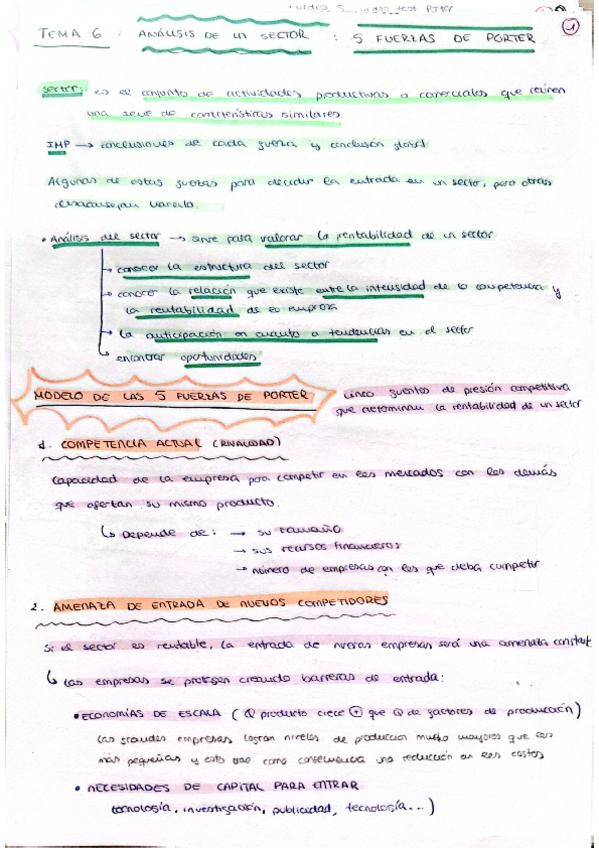 video 5 video test Porter
1
TEMA 6 : ANÁLISIS DE UN SECTOR : 5 FUERZAS DE PORTER
sector: es el conjunto de actividades productivas o comerciales que reúnen
una serie de características similares.
IMP → conclusiones de cada fuerza y conclusión global
Algunas de estas fuerzas para decidir la entrada en un sector, pero otras
desaconsejan hacerlo.
• Análisis del sector → sirve para valorar la rentabilidad de un sector
→ conocer la estructura del sector
→ conocer la relación que existe entre la intensidad de la competencia y
la rentabilidad de es empresa
→ la anticipación en cuanto a tendencias en el sector
→ encontrar oportunidades
MODELO DE LAS 5 FUERZAS DE PORTER
cinco fuentes de presión competitiva
que determinan la rentabilidad de un sector
1. COMPETENCIA ACTUAL (RIVALIDAD)
capacidad de la empresa para competir en los mercados con los demás
que ofertan su mismo producto.
↳ Depende de: → su tamaño
→ sus recursos financieros
→ número de empresas con las que deba competir
2. AMENAZA DE ENTRADA DE NUEVOS COMPETIDORES
Si el sector es rentable, la entrada de nuevas empresas será una amenaza constant
↳ Las empresas se protegen creando barreras de entrada:
• ECONOMÍAS DE ESCALA (Q producto crece ⊕ que Q de factores de producción)
Las grandes empresas logran niveles de producción mucho mayores que las
más pequeñas y esto trae como consecuencia una reducción en los costes
• NECESIDADES DE CAPITAL PARA ENTRAR
tecnología, investigación, publicidad, tecnología...)